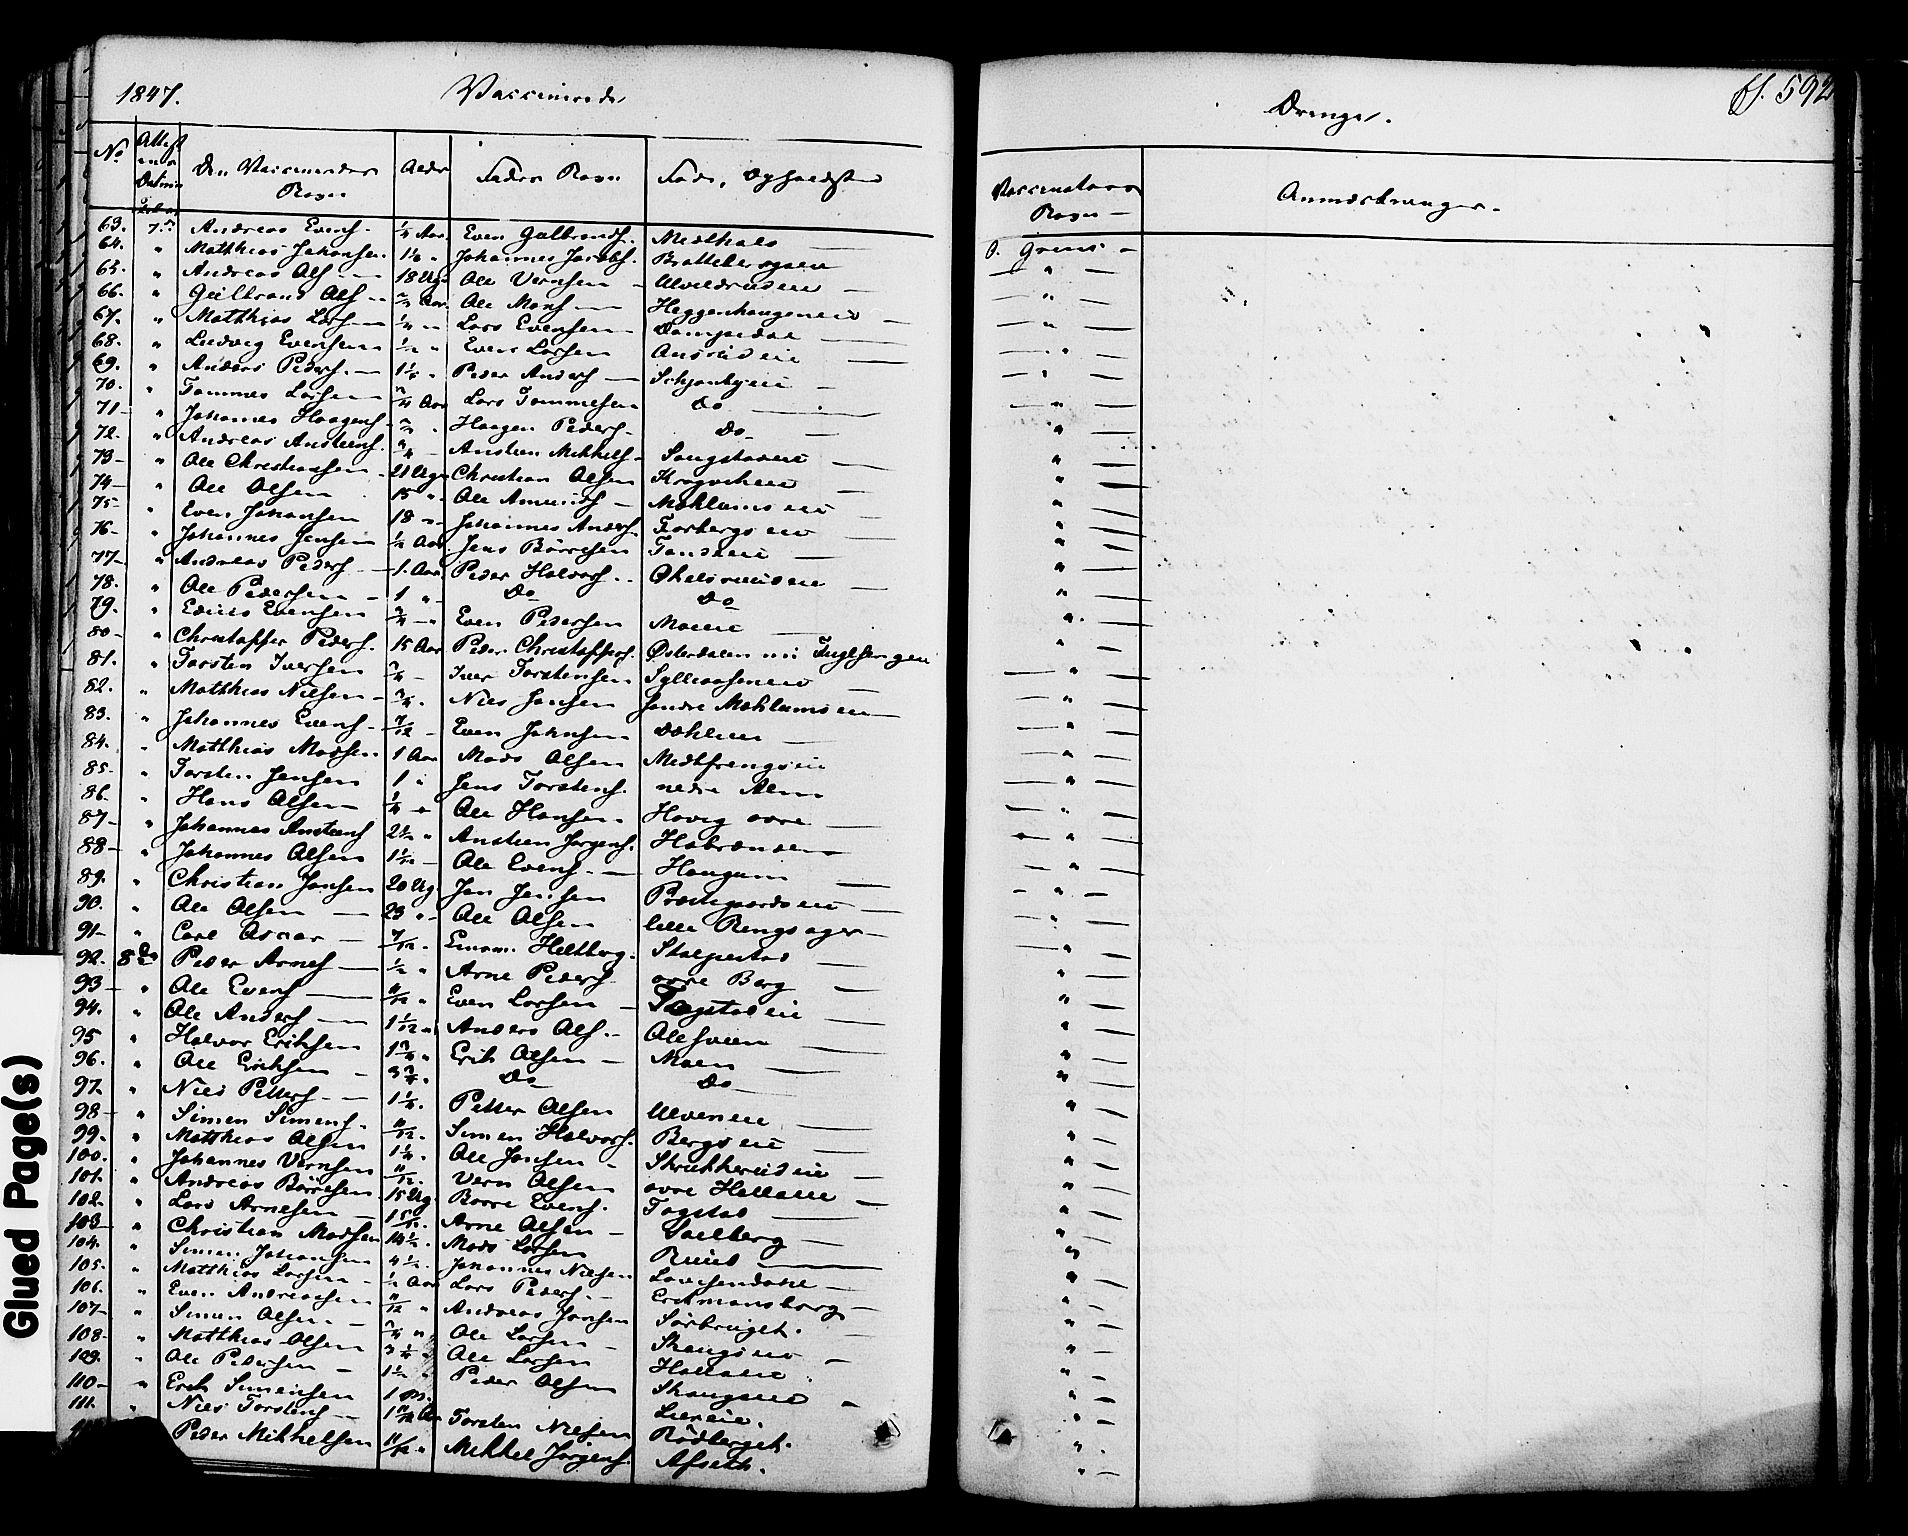 1847. Vaccinerede
Drenge. fl. 592
No Attestens Datum Den Vaccineredes Navn Alder Faders Navn Føde, Opholdsted
Vaccinateurens Navn Anmærkninger.
63. 7de Andreas Evens. 1/4 Aar Even Gulbrands. Melhals O. Grens
64. " Matthias Johansen 1 1/2 " Johannes Jacobs. Brattebergeie "
65. " Andreas Ols. 18 Ug. Ole Vernsen Ulvildruseie "
66. " Gulbrand Ols 3/4 Aar Ole Mons Heggenhaugeneie "
67. " Matthias Lars 1/4 " Lars Evensen "
68. " Ludvig Evensen 1/2 " Even Larsen Ansrudeie "
69. " Anders Peders. 1 1/2 " Peder Anders Schjønbyeie "
70. " Tommes Larsen 3/4 Aar Lars Tommesen Do "
71 " Johannes Haagens. 3/4 " Haagen Peders. Do "
72. " Andreas Anstens. 3/4 Ansten Mikkels Saugstadeie "
73 " Ole Christiansen 21 Uger Christian Olsen Krogveheie "
74 " Ole Olsen 15 " Ole Amunds Mæhlumseie "
75 " Even Johansen 18 " Johannes Anders. Forbergseie "
76 " Johannes Jensen 1/2 Aar Jens Börresen Fandseie "
77 " Andreas Peders 1. Aar Peder Halvors. Økelsrudseie "
78. " Ole Pedersen 1 " Do Do "
79. " Edvies Evensen 3/4 Even Pedersen Moeeie "
80 " Christopher Peders. 15 Aar Peder Christophers. Østerdalen "
81. " Torsten Iversen 3/4 Iver Torstensen Sylliaaseneie "
82. " Matthias Nilsen 3/4. Niels Jensen søndre Mæhlumseie "
83. " Johannes Evens. 7/12 Even Johnsen Dæhleneie "
84. " Matthias Madsen 1 Aar Mads Olsen Medtfrengseie "
85. " Torsten Jensen 1 " Jens Torstens. nedre Alm "
86. " Hans Olsen 1/4 " Ole Hansen Hovig øvre "
87 " Johannes Anstens 2 1/2 " Ansten Jørgens. Habrænden "
88 " Johannes Olsen 1 1/12 Ole Evens. Haugum "
89. " Christian Jansen 20 Ug. Jan Jensen Prestegaardseie "
90. " Ole Olsen 23 " Ole Olsen lille Ringsager "
91 " Carl Oscar 7/12 " Heltberg. Stalpestad "
92. 8de Peder Arnes 1/2 " Arne Peders øvre Berg "
93 " Ole Evens 11/12 " Even Larsen Fagstadeie "
94. " Ole Anders 1 1/12 " Anders Ols. Olesveen "
95 " Halvor Eriksen 1 3/4 " Erik Olsen Moen "
96. " Ole Eriksen 3 3/4. Do Do "
97. " Niels Petters 1 1/2. Petter Olsen Ulveneie "
98 " Simen Simens. 11/12. Simen Halvors. Bergseie "
99. " Matthias Olsen 1 1/4. Ole Jansen Skrukkerudeie "
100. " Johannes Vernsen 11/12. Vern Olsen øvre Hellaeie "
101. " Andreas Börresen 15 Ug. Borre Evens. Fagstad "
102. " Lars Arnesen 1 5/12. Arne Olsen Sailberg "
103 " Christian Madsen 14 1/2. Mads Larsen Ruud "
104. " Simen Johansen 4 1/2. Johannes Nilsen Lovisendahl "
105. " Matthias Larsen 1/2 Aar Lars Peders. Erikmansborg "
106. " Even Andreasen 11/12 " Andreas Jansen Sørbruget. "
107 " Simen Olsen 3/4 " Ole Larsen Skaugseie "
108 " Matthias Olsen 3 1/4 Ole Larsen Hollaeie "
109. " Ole Pedersen 1 1/2 " Peder Olsen Skaugseie "
110 " Erik Simensen 1 M. Liereie. "
111. " Niels Torstens 1 7/12 Aar Torsten Nielsen Rödberget. "
Peder Mikkelsen 11/12 " Mikkel Jørgens. Afseth. "
Glued Page(s)